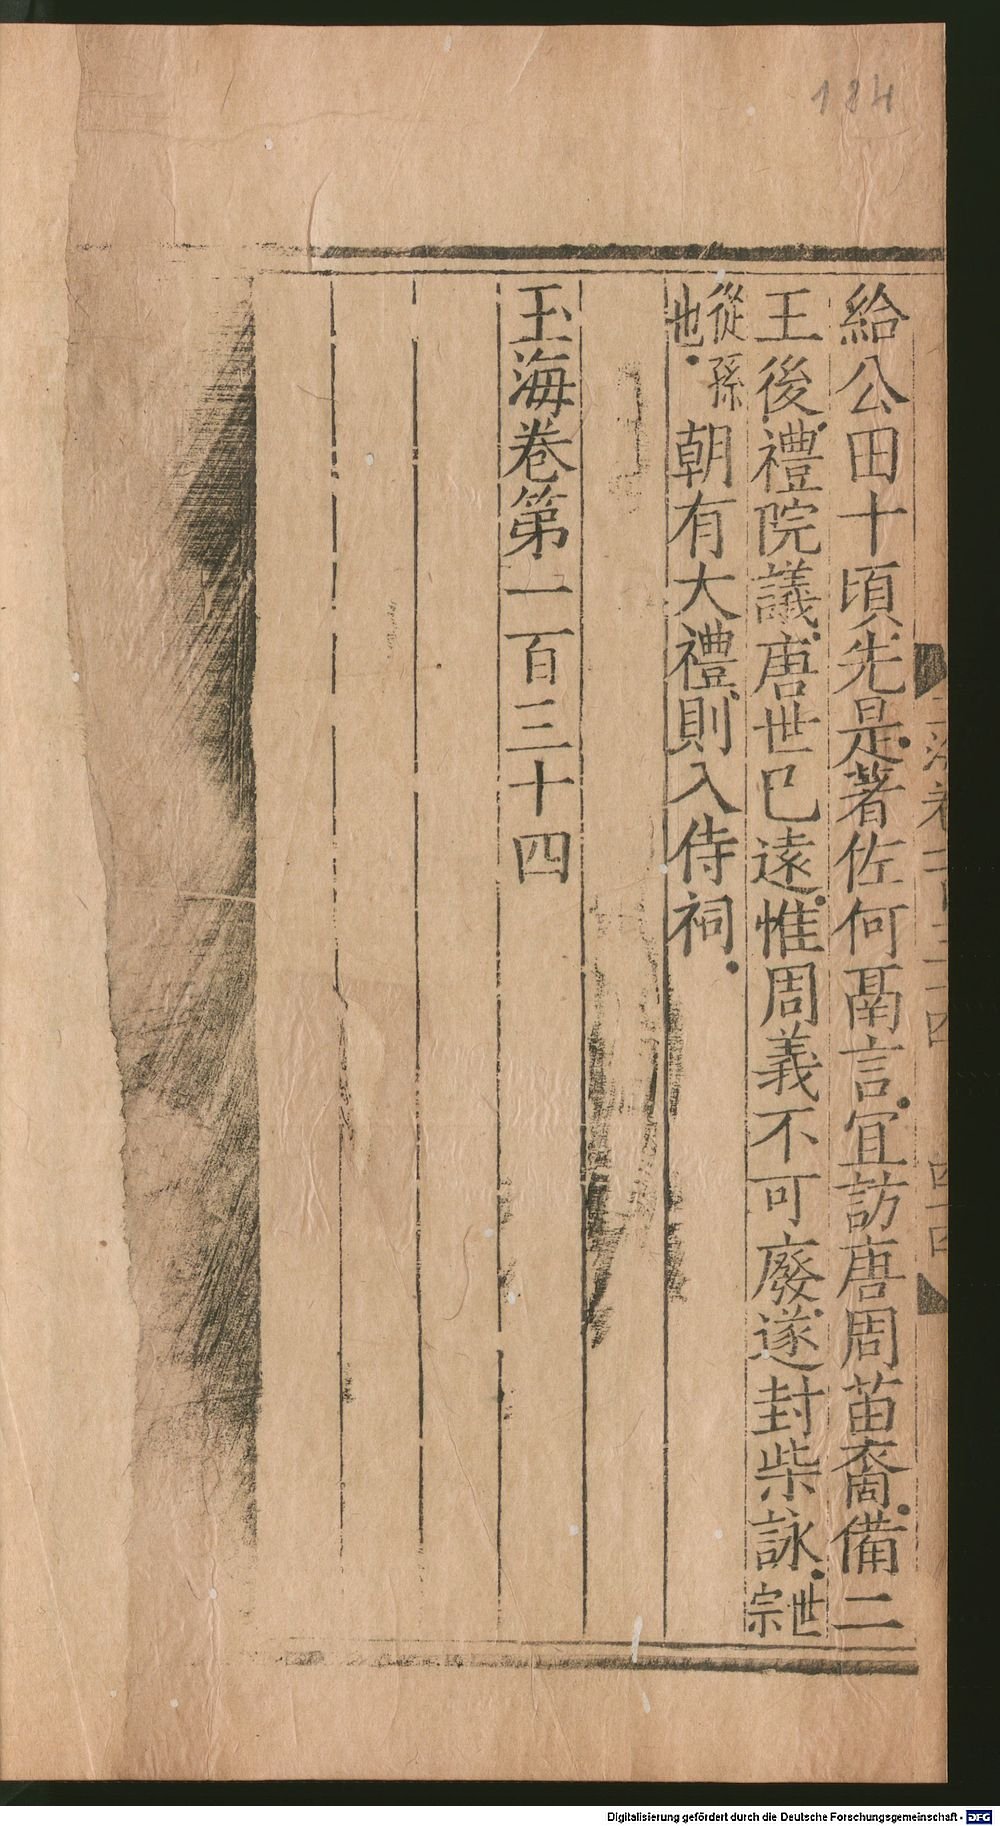 184
給公田十頃先是著佐何鬲言宜訪唐周苗裔備二
王後禮院議唐世已遠惟周義不可廢遂封柴詠世宗
從孫也朝有大禮則入侍祠
玉海卷第一百三十四
Digitalisierung gefördert durch die Deutsche Forschungsgemeinschaft - DFG